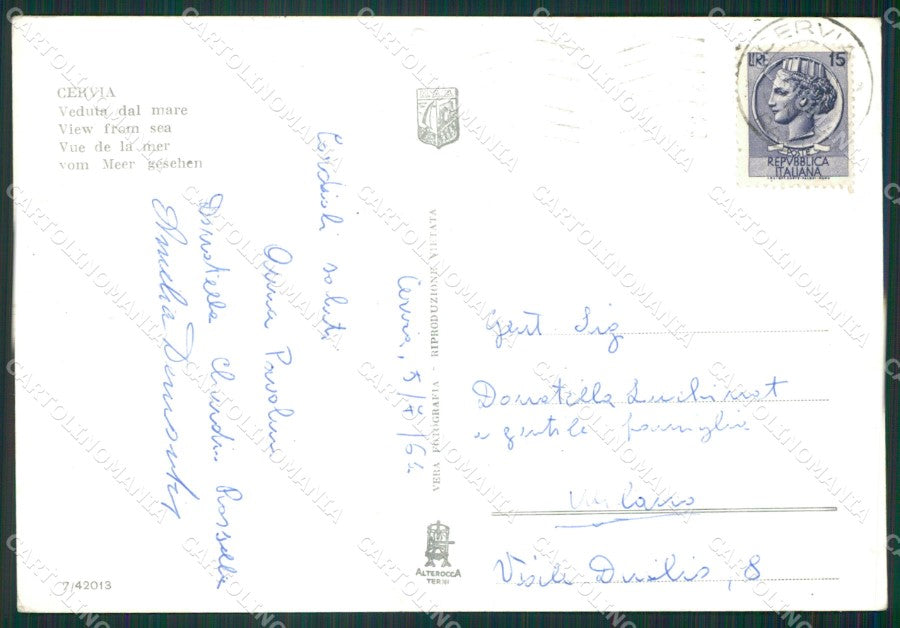 CERVIA
Veduta dal mare
View from sea
Vue de la mer
vom Meer gesehen
CERVIA
LIRE 15
POSTE
REPVBBLICA
ITALIANA
Cervia, 5/7/64
Cordiali saluti
Anna Pavolini
Donatella Chiandi Rossella
VERA FOTOGRAFIA - RIPRODUZIONE VIETATA
Gent Sig
Donatella
e gentile famiglia
Milano
Viale Duilio, 8
ALTEROCCA
TERNI
7/42013
CARTOLINOMANIA